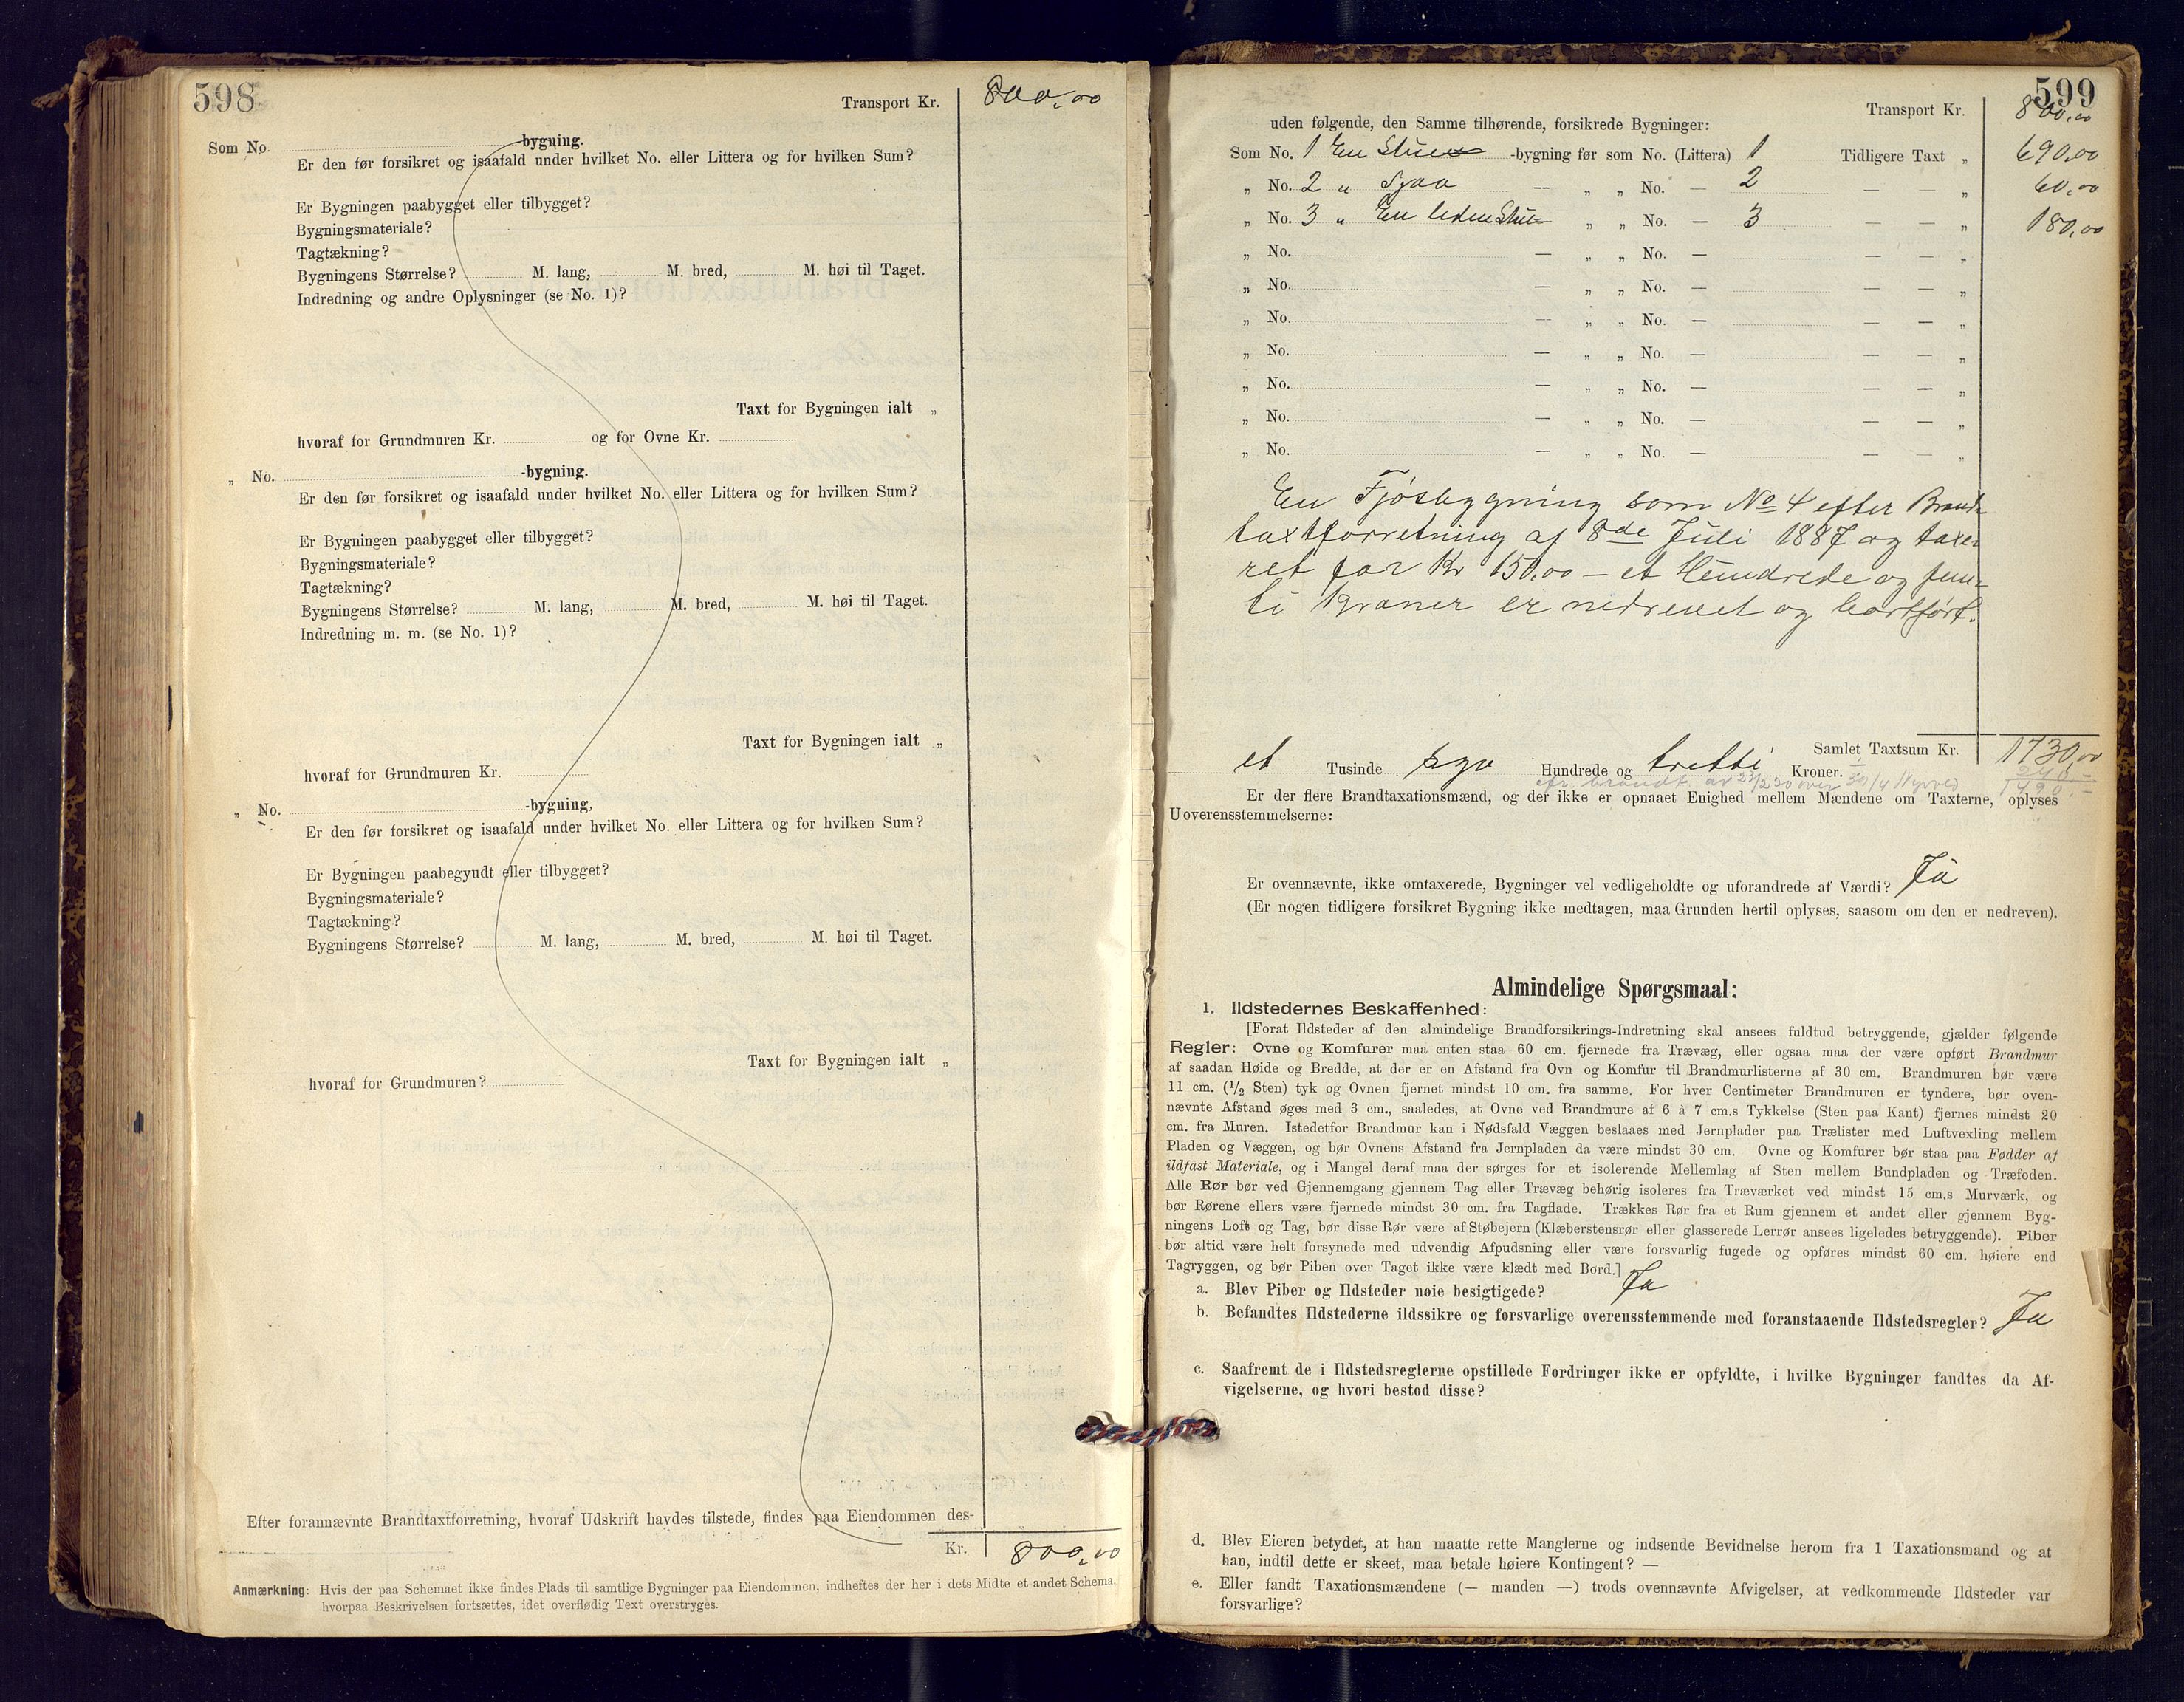 598
Transport Kr. 800,00
Som No. -bygning.
Er den før forsikret og isaafald under hvilket No. eller Littera og for hvilken Sum?
Er Bygningen paabygget eller tilbygget?
Bygningsmateriale?
Tagtækning?
Bygningens Størrelse? M. lang, M. bred, M. høi til Taget.
Indredning og andre Oplysninger (se No. 1)?
Taxt for Bygningen ialt „
hvoraf for Grundmuren Kr. og for Ovne Kr.
„ No. -bygning.
Er den før forsikret og isaafald under hvilket No. eller Littera og for hvilken Sum?
Er Bygningen paabygget eller tilbygget?
Bygningsmateriale?
Tagtækning?
Bygningens Størrelse? M. lang, M. bred, M. høi til Taget.
Indredning m. m. (se No. 1)?
Taxt for Bygningen ialt „
hvoraf for Grundmuren Kr.
„ No. -bygning,
Er den før forsikret og isaafald under hvilket No. eller Littera og for hvilken Sum?
Er Bygningen paabegyndt eller tilbygget?
Bygningsmateriale?
Tagtækning?
Bygningens Størrelse? M. lang, M. bred, M. høi til Taget.
Taxt for Bygningen ialt „
hvoraf for Grundmuren?
Efter forannævnte Brandtaxtforretning, hvoraf Udskrift havdes tilstede, findes paa Eiendommen des-
Kr. 800,00
Anmærkning: Hvis der paa Schemaet ikke findes Plads til samtlige Bygninger paa Eiendommen, indheftes der her i dets Midte et andet Schema,
hvorpaa Beskrivelsen fortsættes, idet overflødig Text overstryges.
599
Transport Kr. 800,00
uden følgende, den Samme tilhørende, forsikrede Bygninger:
Som No. 1 En Stue -bygning før som No. (Littera) 1 Tidligere Taxt „ 690,00
„ No. 2 „ — „ „ No. — 2 — — „ 60,00
„ No. 3 „ En liden Stue „ „ No. — 3 — — „ 180,00
„ No. — „ „ No. — — — „
„ No. — „ „ No. — — — „
„ No. — „ „ No. — — — „
„ No. — „ „ No. — — — „
„ No. — „ „ No. — — — „
„ No. — „ „ No. — — — „
„ No. — „ „ No. — — — „
En Fjøsbygning som No 4 efter Brand-
taxtforretning af 8de Juli 1887 og taxe-
ret for Kr 150,00 – et Hundrede og fem-
ti Kroner er nedrevet og bortført.
Samlet Taxtsum Kr. 1730,00
et Tusinde syv Hundrede og tretti Kroner.
240,–
1490,–
Er der flere Brandtaxationsmænd, og der ikke er opnaaet Enighed mellem Mændene om Taxterne, oplyses
Uoverensstemmelserne:
Er ovennævnte, ikke omtaxerede, Bygninger vel vedligeholdte og uforandrede af Værdi? Ja
(Er nogen tidligere forsikret Bygning ikke medtagen, maa Grunden hertil oplyses, saasom om den er nedreven).
Almindelige Spørgsmaal:
1. Ildstedernes Beskaffenhed:
[Forat Ildsteder af den almindelige Brandforsikrings-Indretning skal ansees fuldtud betryggende, gjælder følgende
Regler: Ovne og Komfurer maa enten staa 60 cm. fjernede fra Trævæg, eller ogsaa maa der være opført Brandmur
af saadan Høide og Bredde, at der er en Afstand fra Ovn og Komfur til Brandmurlisterne af 30 cm. Brandmuren bør være
11 cm. (1/2 Sten) tyk og Ovnen fjernet mindst 10 cm. fra samme. For hver Centimeter Brandmuren er tyndere, bør oven-
nævnte Afstand øges med 3 cm., saaledes, at Ovne ved Brandmure af 6 à 7 cm.s Tykkelse (Sten paa Kant) fjernes mindst 20
cm. fra Muren. Istedetfor Brandmur kan i Nødsfald Væggen beslaaes med Jernplader paa Trælister med Luftvexling mellem
Pladen og Væggen, og bør Ovnens Afstand fra Jernpladen da være mindst 30 cm. Ovne og Komfurer bør staa paa Fødder af
ildfast Materiale, og i Mangel deraf maa der sørges for et isolerende Mellemlag af Sten mellem Bundpladen og Træfoden.
Alle Rør bør ved Gjennemgang gjennem Tag eller Trævæg behørig isoleres fra Træværket ved mindst 15 cm.s Murværk, og
bør Rørene ellers være fjernede mindst 30 cm. fra Tagflade. Trækkes Rør fra et Rum gjennem et andet eller gjennem Byg-
ningens Loft og Tag, bør disse Rør være af Støbejern (Klæberstensrør eller glasserede Lerrør ansees ligeledes betryggende). Piber
bør altid være helt forsynede med udvendig Afpudsning eller være forsvarlig fugede og opføres mindst 60 cm. høiere end
Tagryggen, og bør Piben over Taget ikke være klædt med Bord.]
a. Blev Piber og Ildsteder nøie besigtigede? Ja
b. Befandtes Ildstederne ildssikre og forsvarlige overensstemmende med foranstaaende Ildstedsregler? Ja
c. Saafremt de i Ildstedsreglerne opstillede Fordringer ikke er opfyldte, i hvilke Bygninger fandtes da Af-
vigelserne, og hvori bestod disse?
d. Blev Eieren betydet, at han maatte rette Manglerne og indsende Bevidnelse herom fra 1 Taxationsmand og at
han, indtil dette er skeet, maa betale høiere Kontingent? —
e. Eller fandt Taxationsmændene (— manden —) trods ovennævnte Afvigelser, at vedkommende Ildsteder var
forsvarlige?